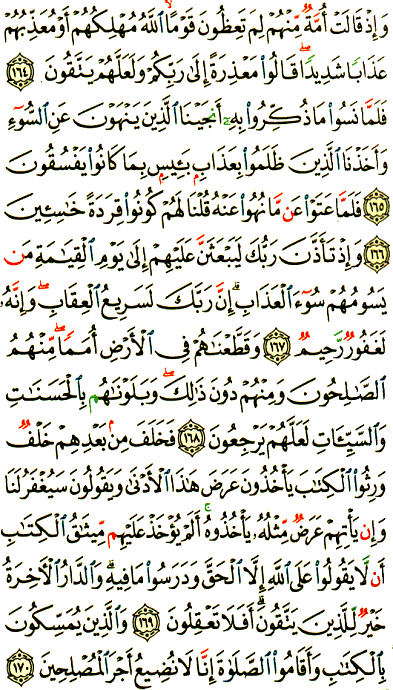 وَإِذْ قَالَتْ أُمَّةٌ مِّنْهُمْ لِمَ تَعِظُونَ قَوْمًا ٱللَّهُ مُهْلِكُهُمْ أَوْ مُعَذِّبُهُمْ
عَذَابًا شَدِيدًا ۖ قَالُوا۟ مَعْذِرَةً إِلَىٰ رَبِّكُمْ وَلَعَلَّهُمْ يَتَّقُونَ ١٦٤
فَلَمَّا نَسُوا۟ مَا ذُكِّرُوا۟ بِهِۦٓ أَنجَيْنَا ٱلَّذِينَ يَنْهَوْنَ عَنِ ٱلسُّوٓءِ
وَأَخَذْنَا ٱلَّذِينَ ظَلَمُوا۟ بِعَذَابٍۭ بَـِٔيسٍۭ بِمَا كَانُوا۟ يَفْسُقُونَ
١٦٥ فَلَمَّا عَتَوْا۟ عَن مَّا نُهُوا۟ عَنْهُ قُلْنَا لَهُمْ كُونُوا۟ قِرَدَةً خَـٰسِـِٔينَ
١٦٦ وَإِذْ تَأَذَّنَ رَبُّكَ لَيَبْعَثَنَّ عَلَيْهِمْ إِلَىٰ يَوْمِ ٱلْقِيَـٰمَةِ مَن
يَسُومُهُمْ سُوٓءَ ٱلْعَذَابِ ۗ إِنَّ رَبَّكَ لَسَرِيعُ ٱلْعِقَابِ ۖ وَإِنَّهُۥ
لَغَفُورٌ رَّحِيمٌ ١٦٧ وَقَطَّعْنَـٰهُمْ فِى ٱلْأَرْضِ أُمَمًا ۖ مِّنْهُمُ
ٱلصَّـٰلِحُونَ وَمِنْهُمْ دُونَ ذَٰلِكَ ۖ وَبَلَوْنَـٰهُم بِٱلْحَسَنَـٰتِ
وَٱلسَّيِّـَٔاتِ لَعَلَّهُمْ يَرْجِعُونَ ١٦٨ فَخَلَفَ مِنۢ بَعْدِهِمْ خَلْفٌ
وَرِثُوا۟ ٱلْكِتَـٰبَ يَأْخُذُونَ عَرَضَ هَـٰذَا ٱلْأَدْنَىٰ وَيَقُولُونَ سَيُغْفَرُ لَنَا
وَإِن يَأْتِهِمْ عَرَضٌ مِّثْلُهُۥ يَأْخُذُوهُ ۚ أَلَمْ يُؤْخَذْ عَلَيْهِم مِّيثَـٰقُ ٱلْكِتَـٰبِ
أَن لَّا يَقُولُوا۟ عَلَى ٱللَّهِ إِلَّا ٱلْحَقَّ وَدَرَسُوا۟ مَا فِيهِ ۗ وَٱلدَّارُ ٱلْـَٔاخِرَةُ
خَيْرٌ لِّلَّذِينَ يَتَّقُونَ ۗ أَفَلَا تَعْقِلُونَ ١٦٩ وَٱلَّذِينَ يُمَسِّكُونَ
بِٱلْكِتَـٰبِ وَأَقَامُوا۟ ٱلصَّلَوٰةَ إِنَّا لَا نُضِيعُ أَجْرَ ٱلْمُصْلِحِينَ ١٧٠